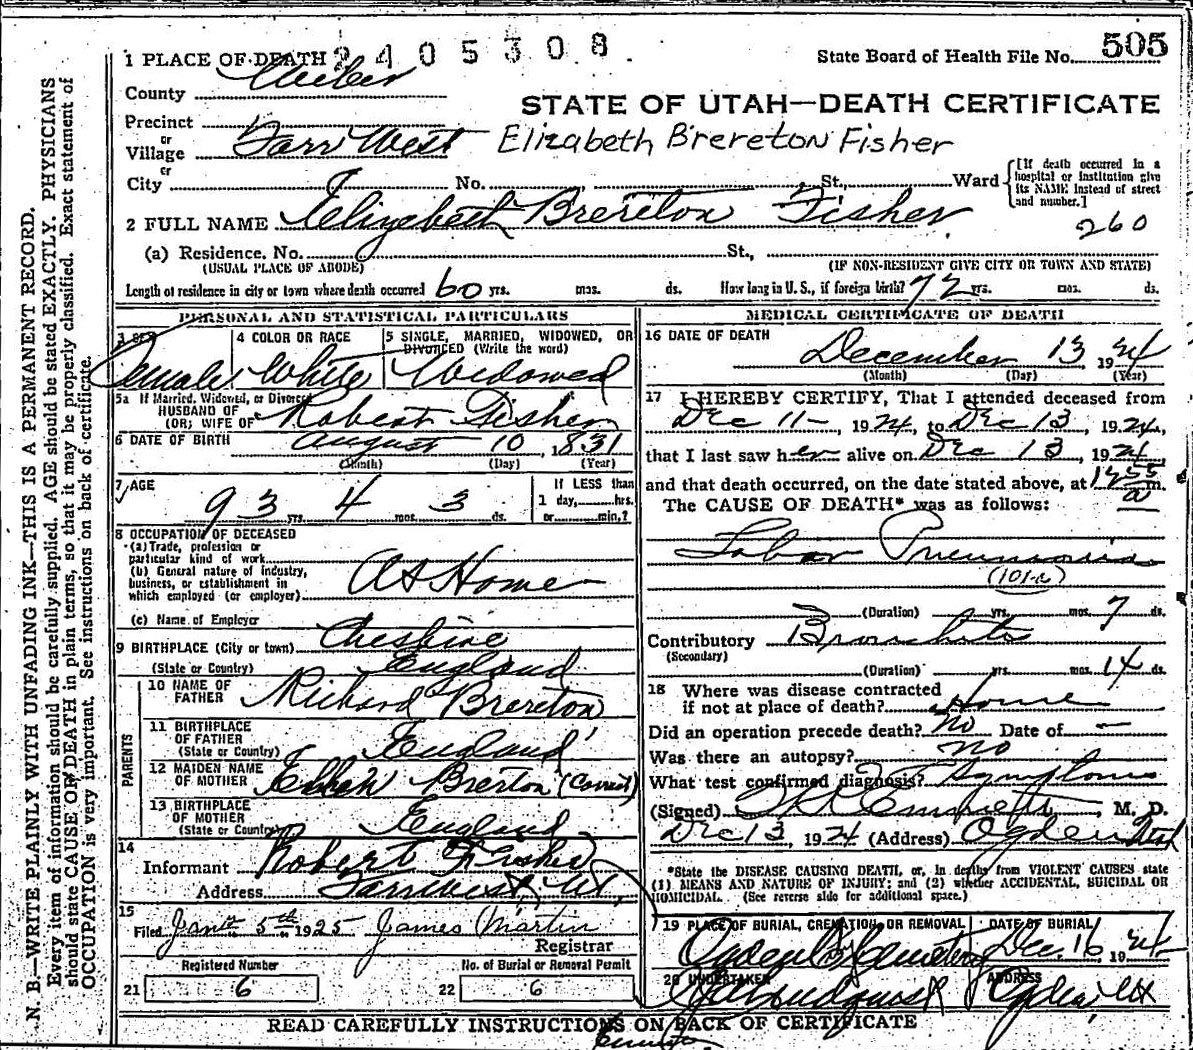 N. B.—WRITE PLAINLY WITH UNFADING INK—THIS IS A PERMANENT RECORD.
Every item of information should be carefully supplied. AGE should be stated EXACTLY. PHYSICIANS
should state CAUSE OF DEATH in plain terms, so that it may be properly classified. Exact statement of
OCCUPATION is very important. See instructions on back of certificate.
1 PLACE OF DEATH 2405308
State Board of Health File No. 505
County Weber
STATE OF UTAH—DEATH CERTIFICATE
Precinct
or
Village Farr West
Elizabeth Brereton Fisher
or
City No. St., Ward
[If death occurred in a
hospital or institution give
its NAME instead of street
and number.]
2 FULL NAME Elizabeth Brereton Fisher
260
(a) Residence. No. St.,
(USUAL PLACE OF ABODE) (IF NON-RESIDENT GIVE CITY OR TOWN AND STATE)
Length of residence in city or town where death occurred 60 yrs. mos. ds. How long in U. S., if foreign birth? 72 yrs. mos. ds.
PERSONAL AND STATISTICAL PARTICULARS
3 SEX
Female
4 COLOR OR RACE
White
5 SINGLE, MARRIED, WIDOWED, OR
DIVORCED (Write the word)
Widowed
5a If Married, Widowed, or Divorced
HUSBAND OF
(OR) WIFE OF Robert Fisher
6 DATE OF BIRTH August 10, 1831
(Month) (Day) (Year)
7 AGE
93 yrs. 4 mos. 3 ds.
If LESS than
1 day, hrs.
or min.?
8 OCCUPATION OF DECEASED
(a) Trade, profession or
particular kind of work
(b) General nature of industry,
business, or establishment in
which employed (or employer)
At Home
(c) Name of Employer
9 BIRTHPLACE (City or town) Cheshire
(State or Country) England
PARENTS
10 NAME OF
FATHER Richard Brereton
11 BIRTHPLACE
OF FATHER
(State or Country) England
12 MAIDEN NAME
OF MOTHER Brerton (Correct)
13 BIRTHPLACE
OF MOTHER
(State or Country) England
14
Informant Robert Fisher
Address Farr West, Ut.
15
Filed Jan 5th 1925 James Martin
Registrar
Registered Number No. of Burial or Removal Permit
21 6 22 6
MEDICAL CERTIFICATE OF DEATH
16 DATE OF DEATH
December 13 1924
(Month) (Day) (Year)
17 I HEREBY CERTIFY, That I attended deceased from
Dec 11, 1924, to Dec 13, 1924,
that I last saw her alive on Dec 13, 1924,
and that death occurred, on the date stated above, at 1255 a m.
The CAUSE OF DEATH* was as follows:
Lobar Pneumonia
(101-a)
(Duration) yrs. mos. 7 ds.
Contributory Bronchitis
(Secondary)
(Duration) yrs. mos. 14 ds.
18 Where was disease contracted
if not at place of death? Home
Did an operation precede death? No Date of —
Was there an autopsy? no
What test confirmed diagnosis? Symptoms
(Signed) Emmett, M. D.
Dec 13, 1924 (Address) Ogden Utah
*State the DISEASE CAUSING DEATH, or, in deaths from VIOLENT CAUSES state
(1) MEANS AND NATURE OF INJURY; and (2) whether ACCIDENTAL, SUICIDAL OR
HOMICIDAL. (See reverse side for additional space.)
19 PLACE OF BURIAL, CREMATION OR REMOVAL
Ogden City Cemetery
DATE OF BURIAL
Dec. 16, 1924
20 UNDERTAKER
ADDRESS
Ogden, Ut
READ CAREFULLY INSTRUCTIONS ON BACK OF CERTIFICATE